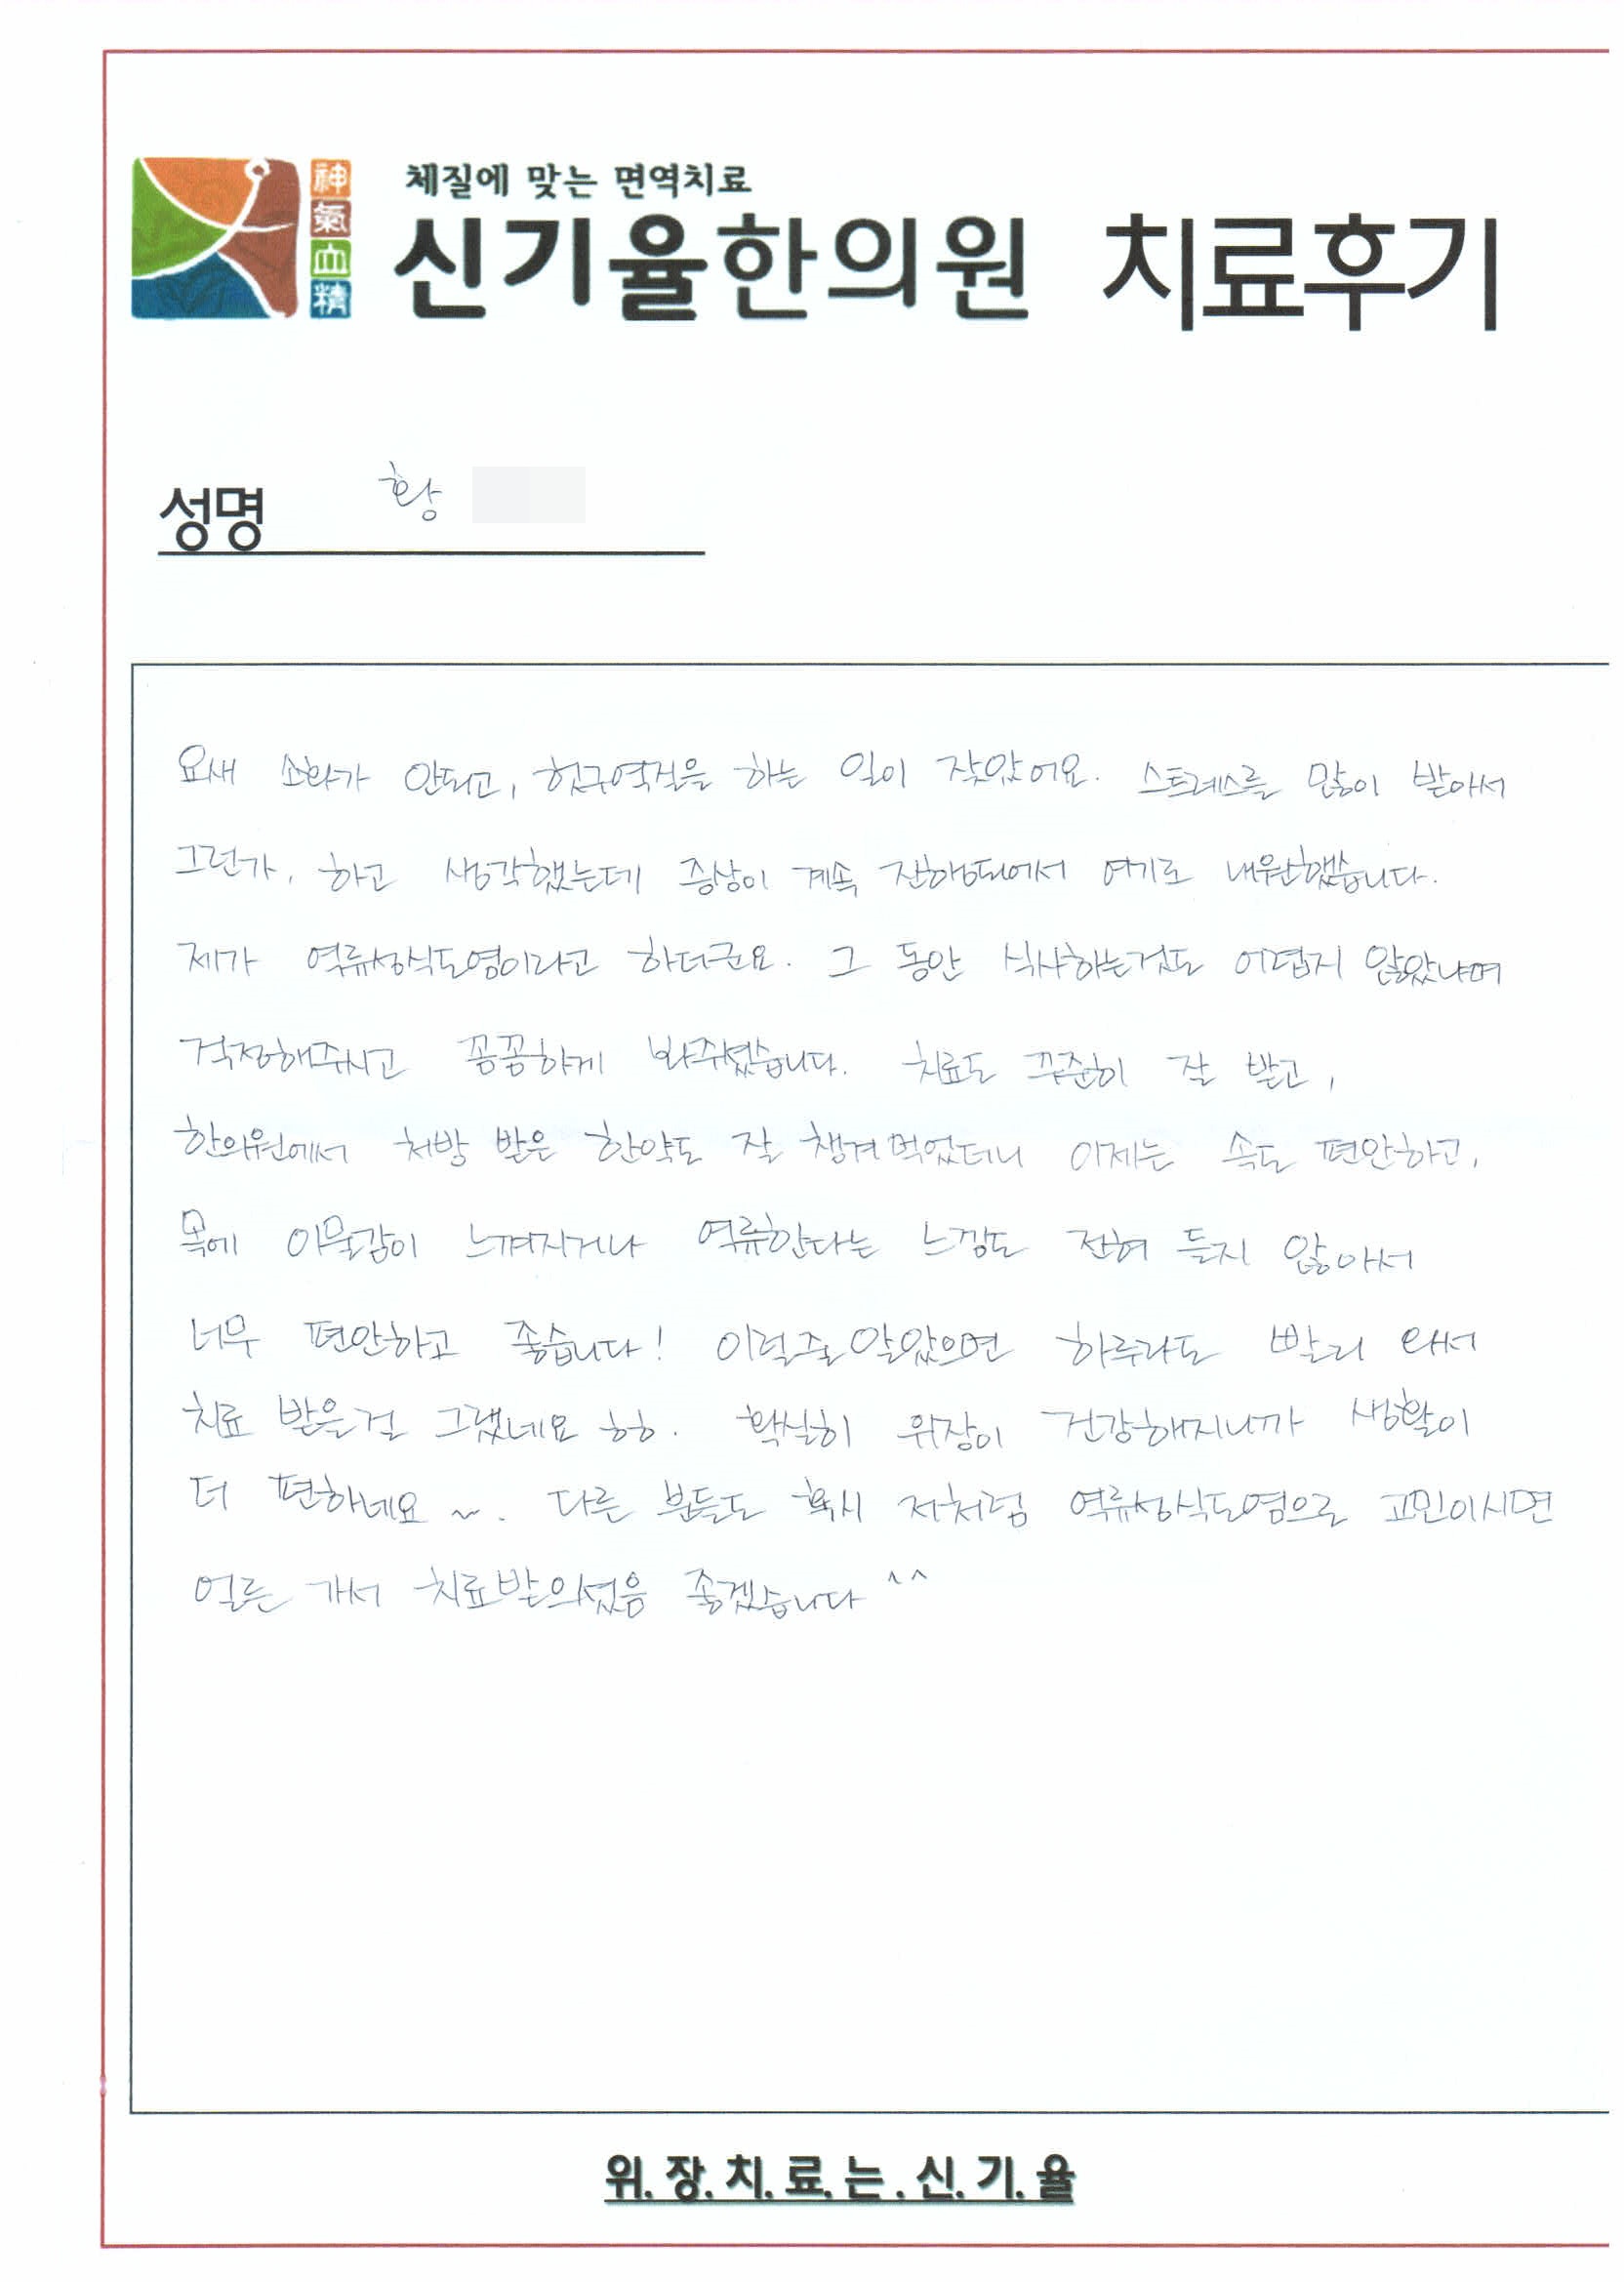 神
氣
血
精
체질에 맞는 면역치료
신기율한의원 치료후기
성명 황
요새 소화가 안되고, 헛구역질을 하는 일이 잦았어요. 스트레스를 많이 받아서
그런가, 하고 생각했는데 증상이 계속 진행되어서 여기로 내원했습니다.
제가 역류성식도염이라고 하더군요. 그 동안 식사하는것도 어렵지 않았냐며
걱정해주시고 꼼꼼하게 봐주셨습니다. 치료도 꾸준히 잘 받고,
한의원에서 처방 받은 한약도 잘 챙겨먹었더니 이제는 속도 편안하고,
목에 이물감이 느껴지거나 역류한다는 느낌도 전혀 들지 않아서
너무 편안하고 좋습니다! 이럴줄알았으면 하루라도 빨리 와서
치료 받을걸 그랬네요 ㅎㅎ. 확실히 위장이 건강해지니까 생활이
더 편하네요~. 다른 분들도 혹시 저처럼 역류성식도염으로 고민이시면
얼른 가서 치료받으셨음 좋겠습니다 ^^
위.장.치.료.는.신.기.율